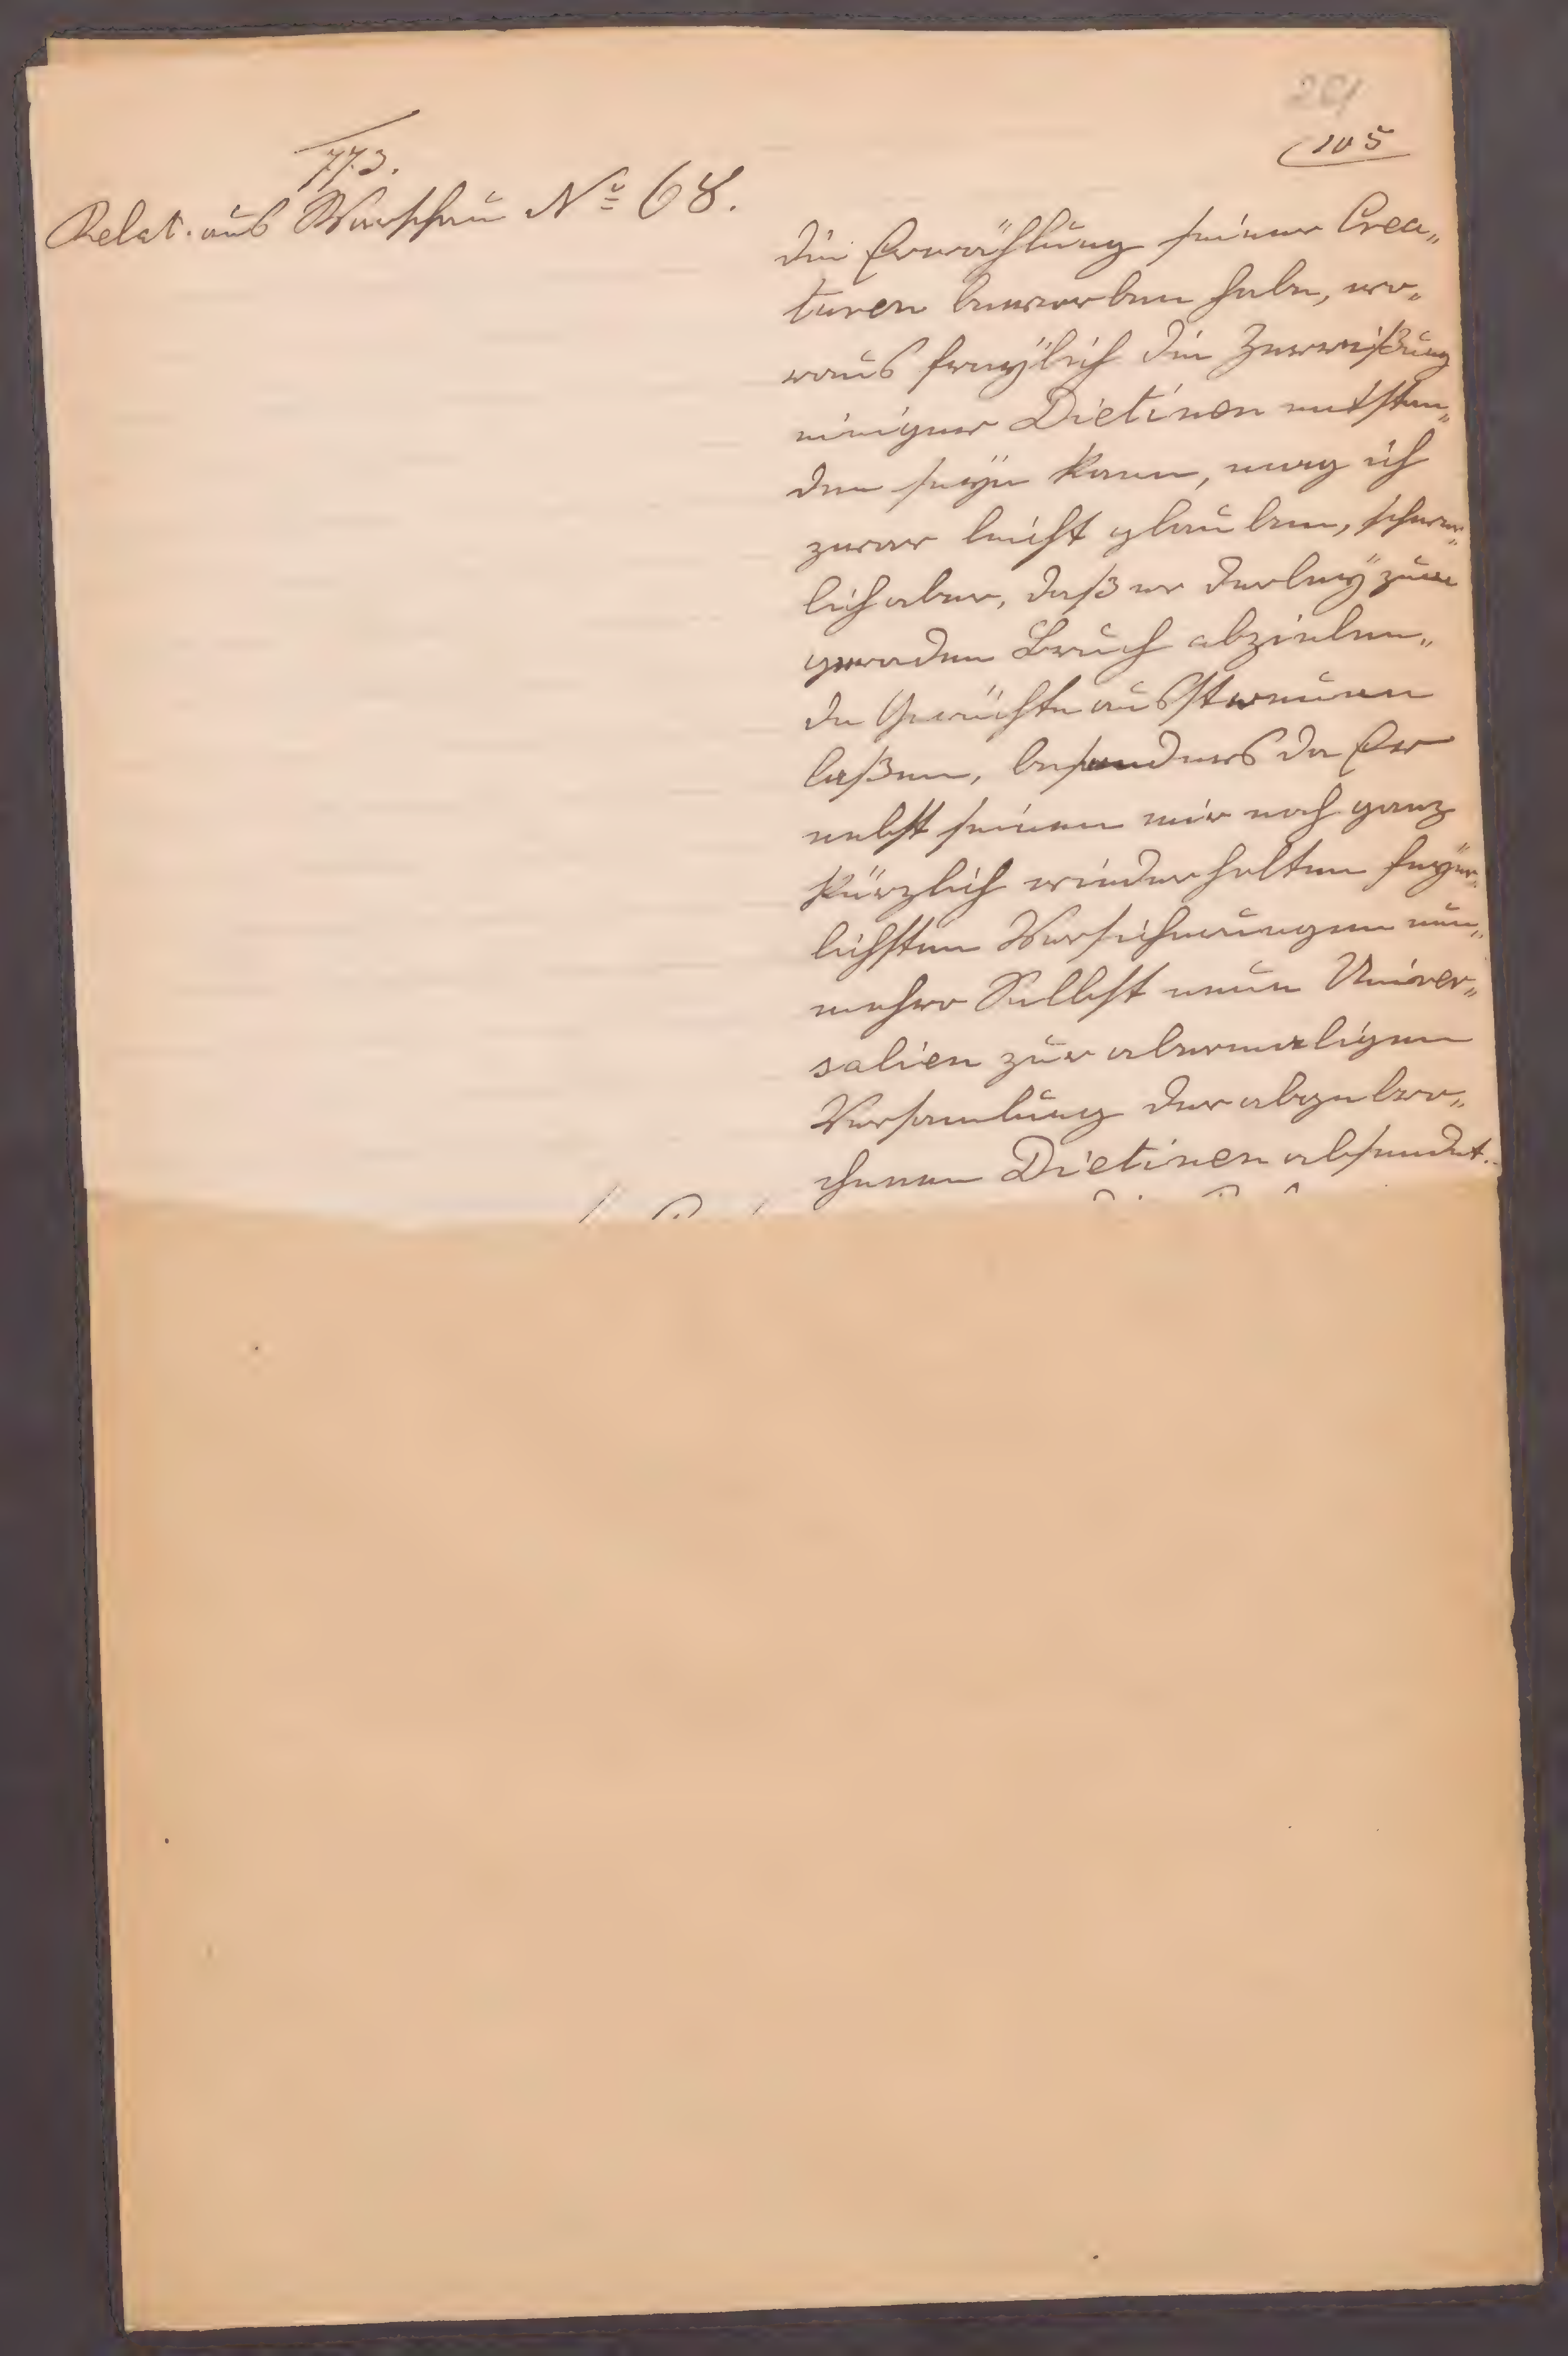 201
105
773.
Relat. aus Warschau No 68.
die Erwählung seiner Crea„
turen beworben habe, wo„
raus freÿlich die Zerreißung
einiger Dietinen entstan„
den seÿn kann, mag ich
zwar leicht glauben, schwer„
lich aber, daß er derleÿ zum
geraden Bruch abzielen„
de Gerüchte ausstreuen
laßen, besonders da Er
nebst seinen mir noch ganz
kürzlich wiederholten feÿer„
lichsten Versicherungen nun„
mehro Selbst neue Univer„
salien zur abermaligen
Versamlung der abgebro„
chenen Dietinen absendet.